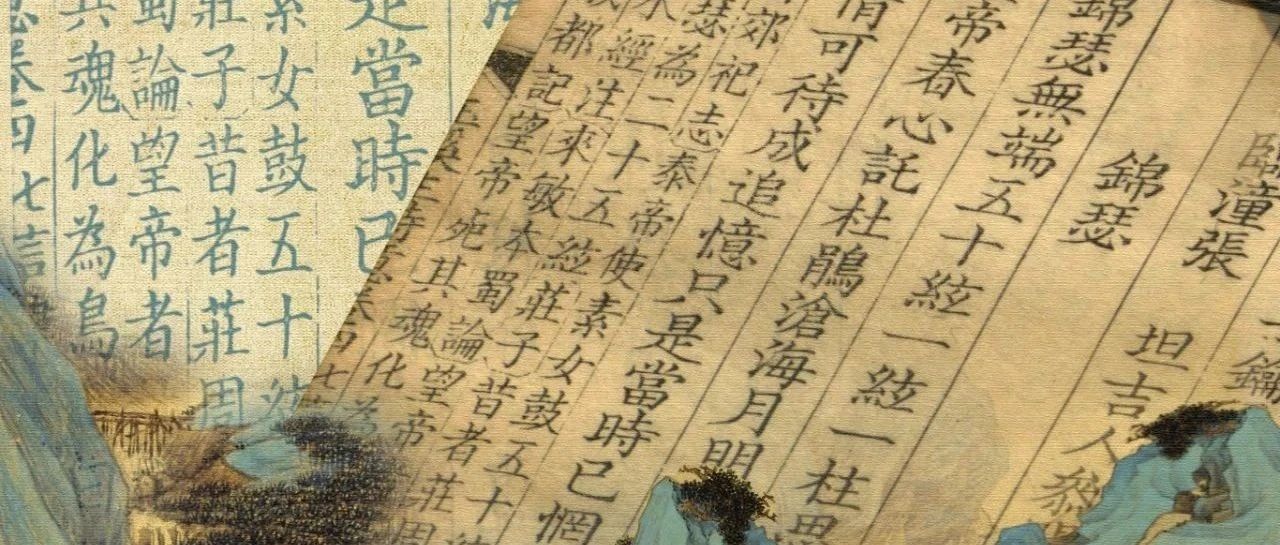 臨潼張
坦吉人參
錦瑟
錦瑟無端五十絃一絃一柱思
帝春心託杜鵑滄海月明
情可待成追憶只是當時已惘
郊祀志泰帝使素女鼓五十絃
瑟為二十五絃莊子昔者莊周
水經注來敏本蜀論望帝者
都記望帝死其魂化為
卷四七
是當時已
素女鼓五十絃
莊子昔者莊周
蜀論望帝者
其魂化為鳥
卷四七言